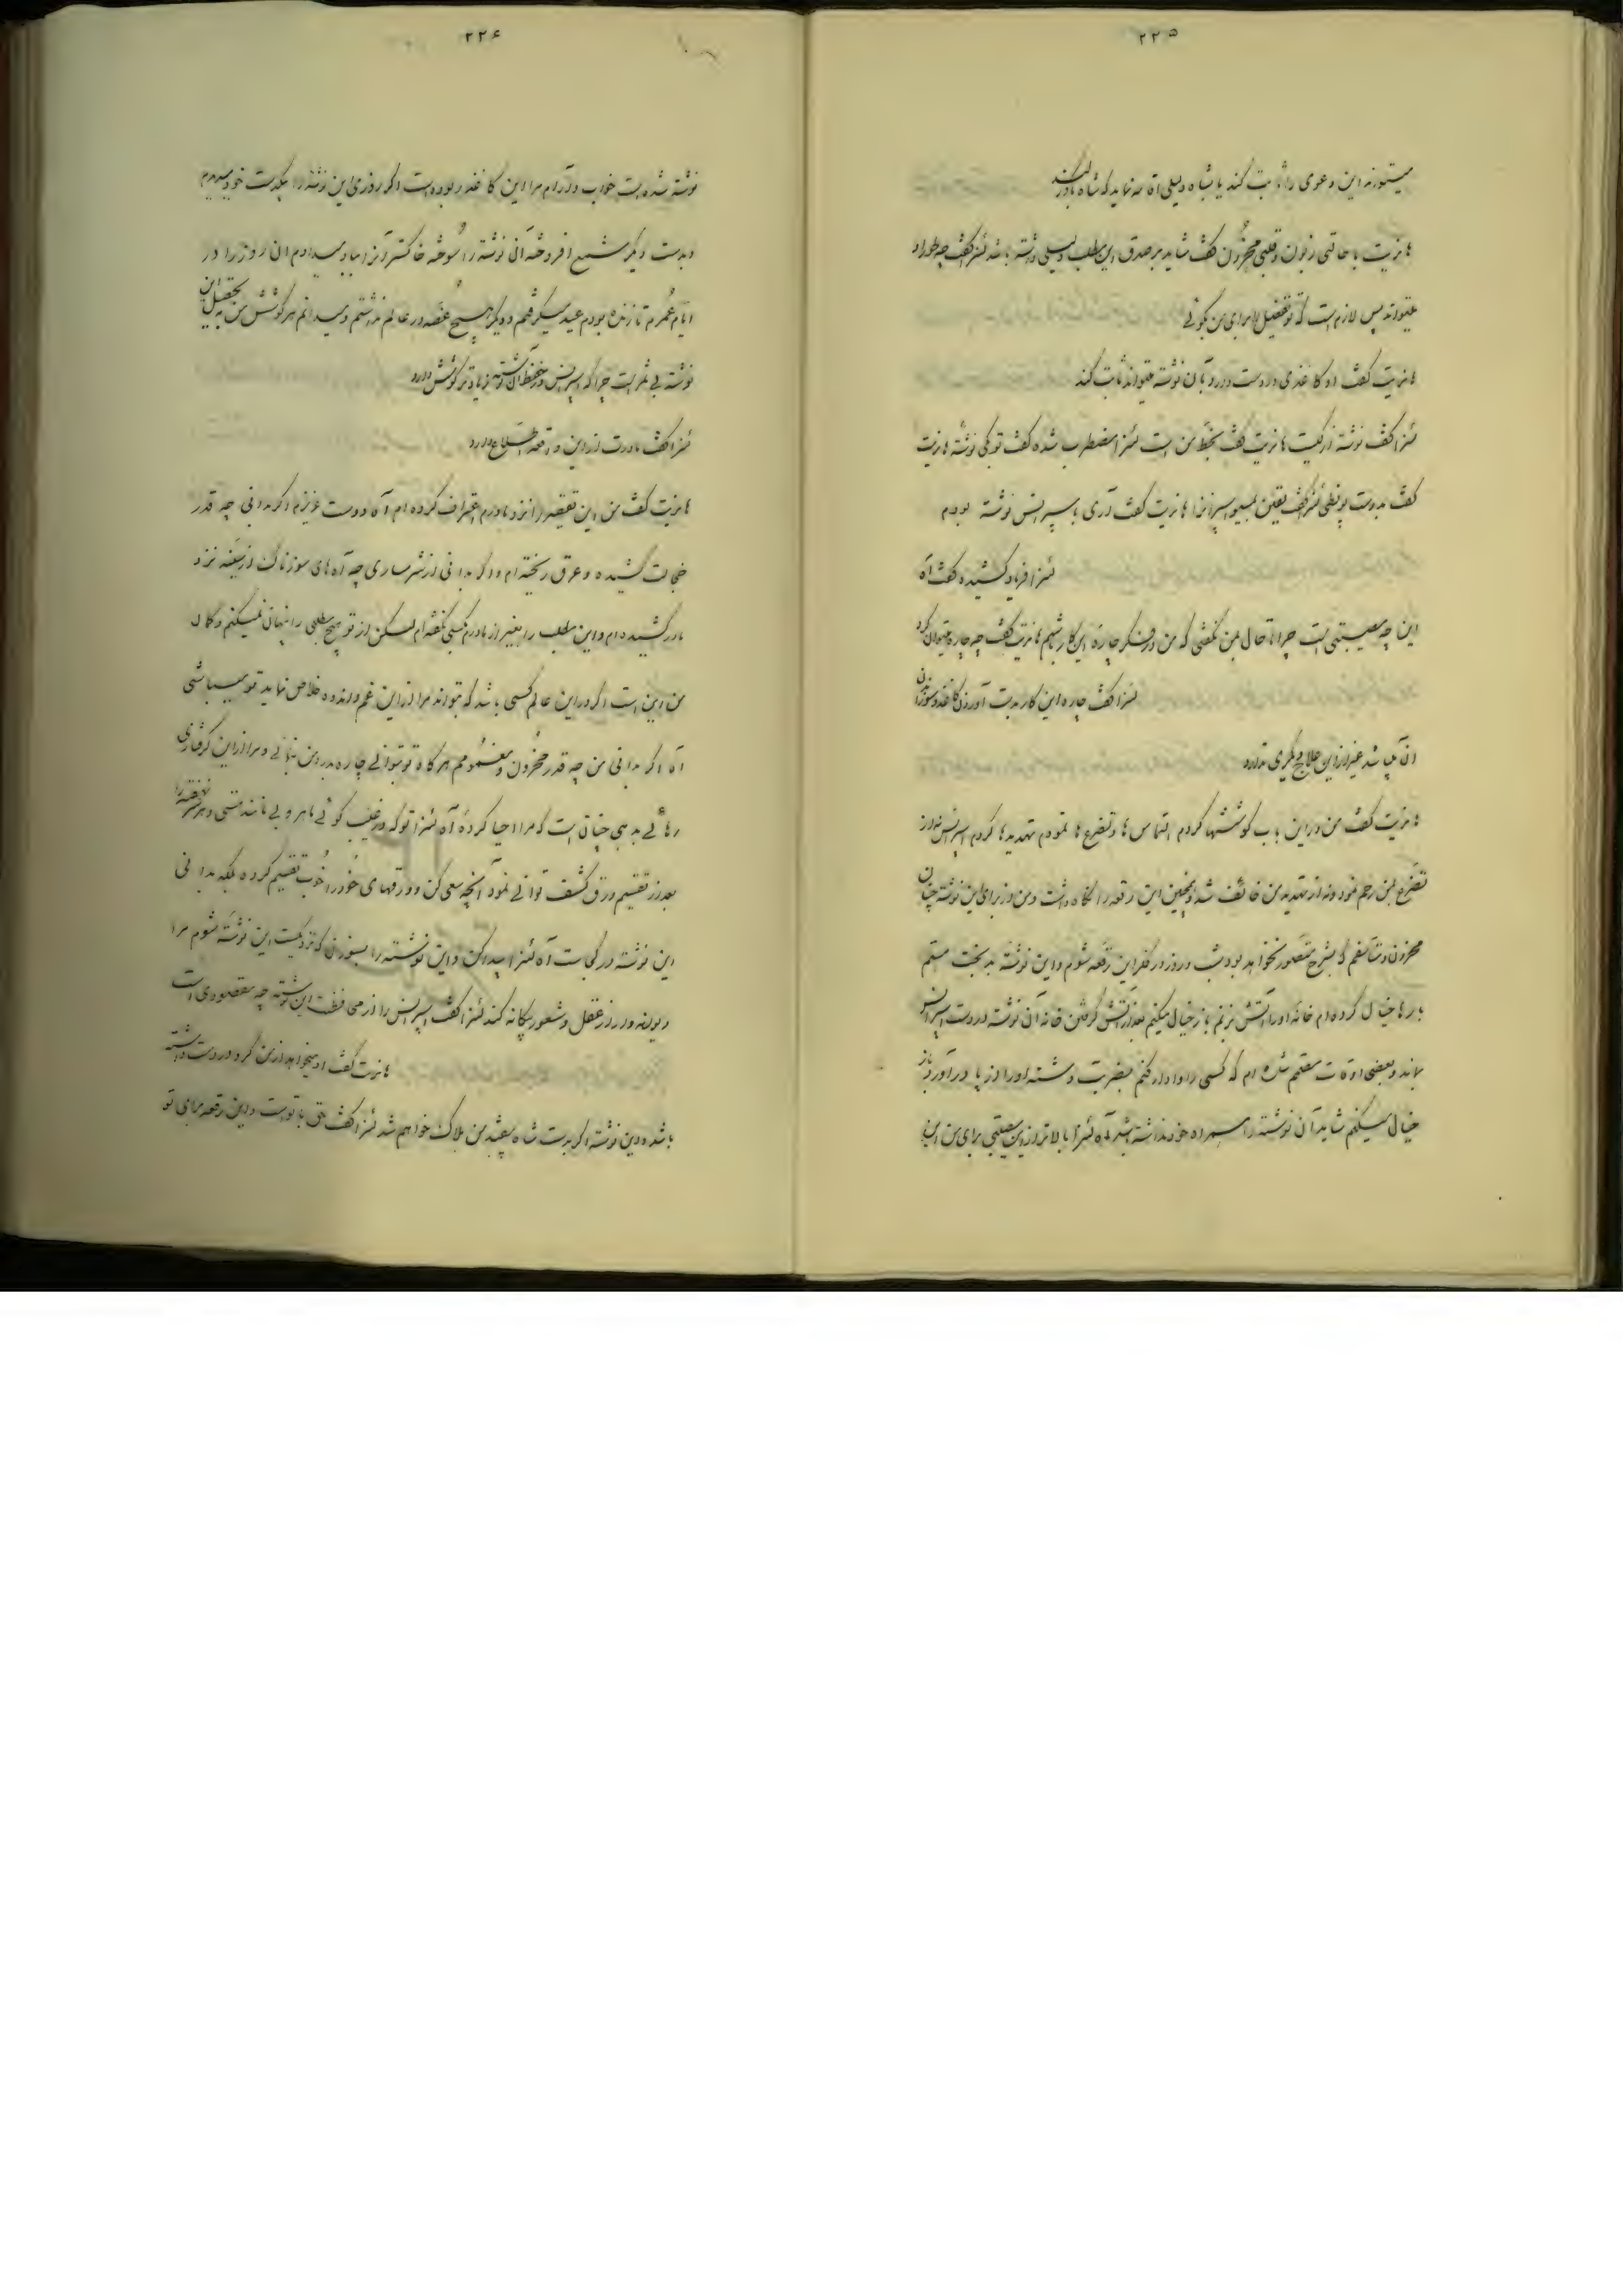 ۲۲۵
میتواند این دعوی را ثابت کند یا بشاه دلیلی اقامه نماید که شاه باور کند
هانریت با حالتی زبون و قلبی محزون گفت شاید بر صدق این مطلب دلیلی داشته باشد ئنزا گفت چه طور او
میتواند پس لازم است که تو تفصیل را برای من بگوئی
هانریت گفت او کاغذی در دست دارد با آن نوشته میتواند ثابت کند
ئنزا گفت نوشته از کیست هانریت گفت بخط من است ئنزا مضطرب شده گفت تو بکی نوشتهٔ هانریت
گفت بدوست ئنزا گفت یقین بمسیو اسپرانزا هانریت گفت آری با سپرانس نوشته بودم
ئنزا فریاد کشیده گفت آه
این چه مصیبتی است چرا تا حال بمن نگفتی که من در فکر چارهٔ این کار باشم هانریت گفت چه چاره میتوان کرد
ئنزا گفت چاره این کار بدست آوردن کاغذ و سوزاندن
آن میباشد غیر از این علاج دیگری ندارد
هانریت گفت من در این باب کوششها کردم التماس ها و تضرع ها نمودم تهدیدها کردم اسپرانس نه از
تضرع بمن رحم نمود و نه از تهدید من خائف شد و همچنین این رقعه را نگاه داشت و من از برای این نوشته چنان
محزون و متأسفم که بشرح متصور نخواهد بود شب و روز در فکر این رقعه شوم و این نوشته بدبخت هستم
بارها خیال کرده ام خانه او را آتش بزنم باز خیال میکنم بعد از آتش گرفتن خانه آن نوشته در دست اسپرانس
بماند و بعضی اوقات مصمم شده ام که کسی را وادار کنم بضربت دشنه او را از پا در آورد باز
خیال میکنم شاید آن نوشته را همراه خود نداشته باشد آه ئنزا بالاتر از این مصیبتی برای من این
۲۲۶
نوشته شده است خواب و آرام مرا این کاغذ ربوده است اگر روزی این نوشته را بیکدست خود میدیدم
و بدست دیگر شمع افروخته آن نوشته را سوخته خاکستر آنرا بباد میدادم آن روز را در
ایام عمرم تا زنده بودم عید میگرفتم و دیگر هیچ غصه در عالم نداشتم و میدانم هر کوشش من به تحصیل این
نوشته بی ثمر است چرا که اسپرانس در حفظ آن نوشته زیادتر کوشش دارد
ئنزا گفت مادرت از این واقعه اطلاع دارد
هانریت گفت من این تقصیر را نزد مادرم اعتراف کرده ام آه دوست عزیزم اگر بدانی چه قدر
خجالت کشیده و عرق ریخته ام و اگر بدانی از شرمساری چه آه های سوزناک از سینه نزد
مادر کشیده ام و این مطلب را بغیر از مادرم بکسی نگفته ام لیکن از تو هیچ مطلبی را پنهان نمیکنم و گمان
من این است اگر در این عالم کسی باشد که بتواند مرا از این غم و اندوه خلاص نماید تو میباشی
آه اگر بدانی من چه قدر محزون و مغمومم هرگاه تو بتوانی چاره بدر من بنمائی و مرا از این گرفتاری
رهائی بدهی چنان است که مرا احیا کردهٔ آه ئنزا تو که در غیب گوئی ماهر و بی مانند هستی و هر سر نهفته را
بعد از تقسیم ورق کشف توانی نمود آنچه سعی کن و ورقهای خود را خوب تقسیم کرده بلکه بدانی
این نوشته در کجاست آه ئنزا پیدا کن و این نوشته را بسوزان که نزدیکست این نوشته شوم مرا
دیوانه و از عقل و شعور بیگانه کند ئنزا گفت اسپرانس را از محافظت این نوشته چه مقصودی است
هانریت گفت او میخواهد از من گرو در دست داشته
باشد و این نوشته اگر بدست شاه بیفتد من هلاک خواهم شد ئنزا گفت حق با توست و این رقعه برای تو